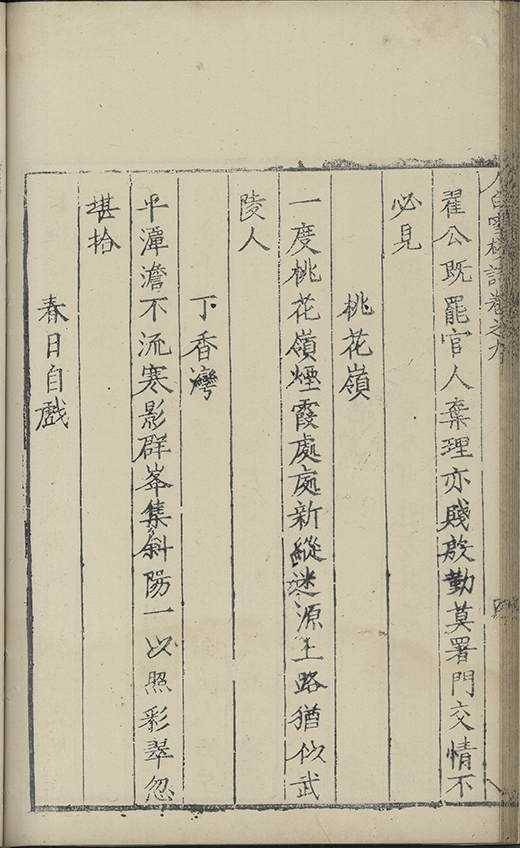 翟公既罷官人棄理亦賤殷勤莫署門交情不
必見
桃花嶺
一度桃花嶺煙霞處處新縱迷源上路猶似武
陵人
丁香灣
平潭澹不流寒影群峯集斜陽一以照彩翠忽
堪拾
春日自戲